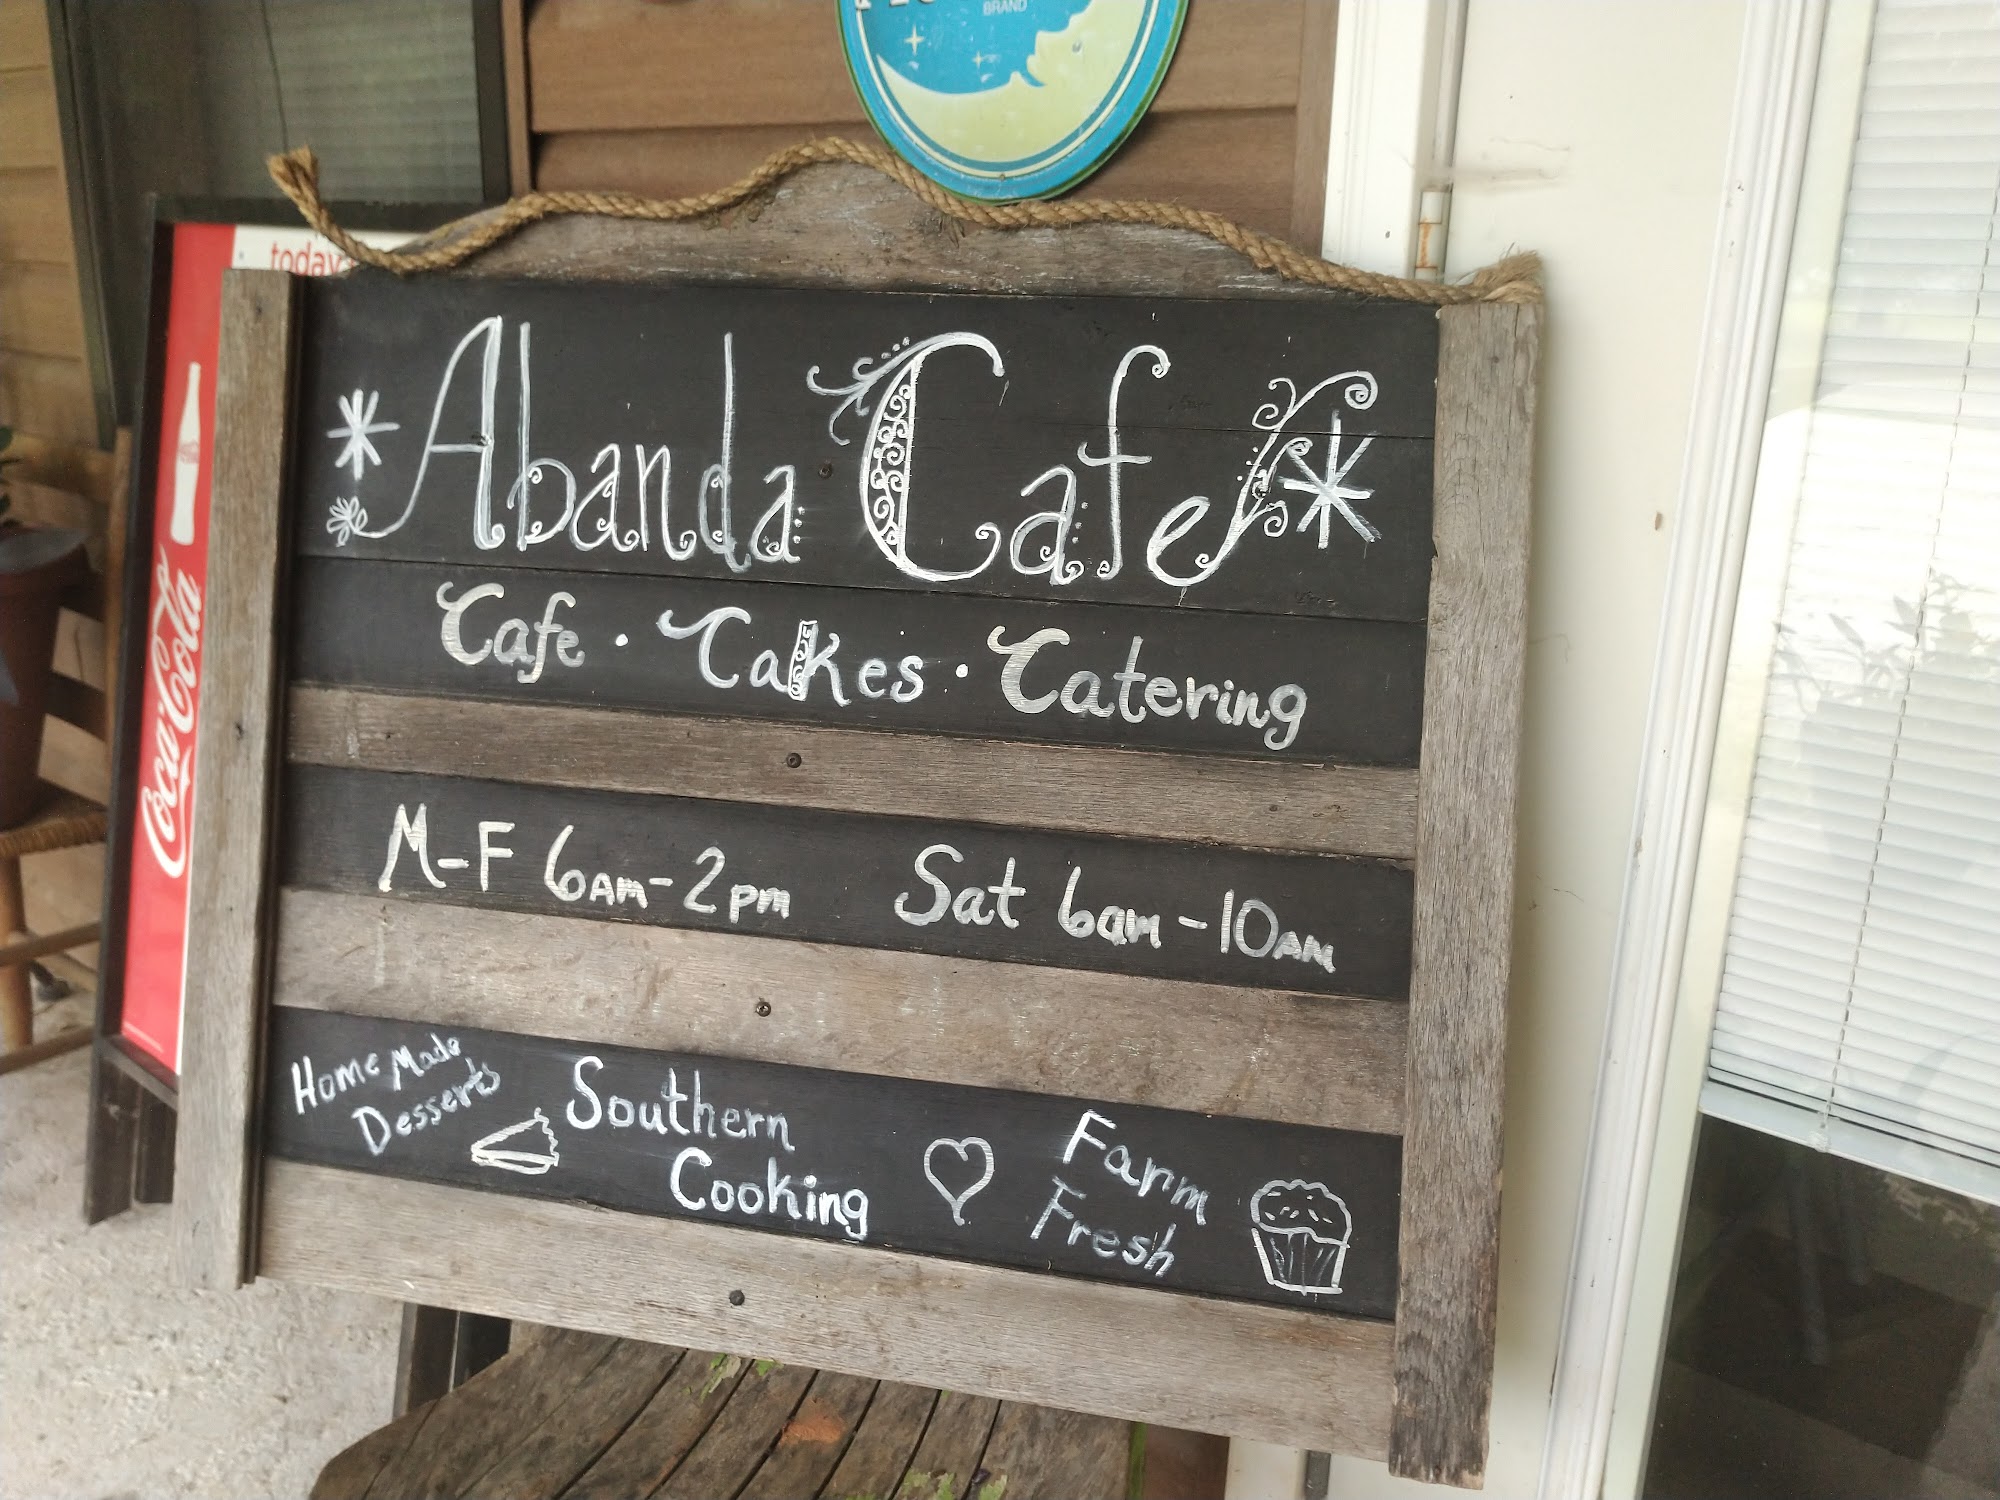 BRAND
today
Coca-Cola
*Abanda Cafe*
Cafe · Cakes · Catering
M-F 6AM-2PM Sat 6am-10AM
Home Made
Desserts
Southern
Cooking
Farm
Fresh